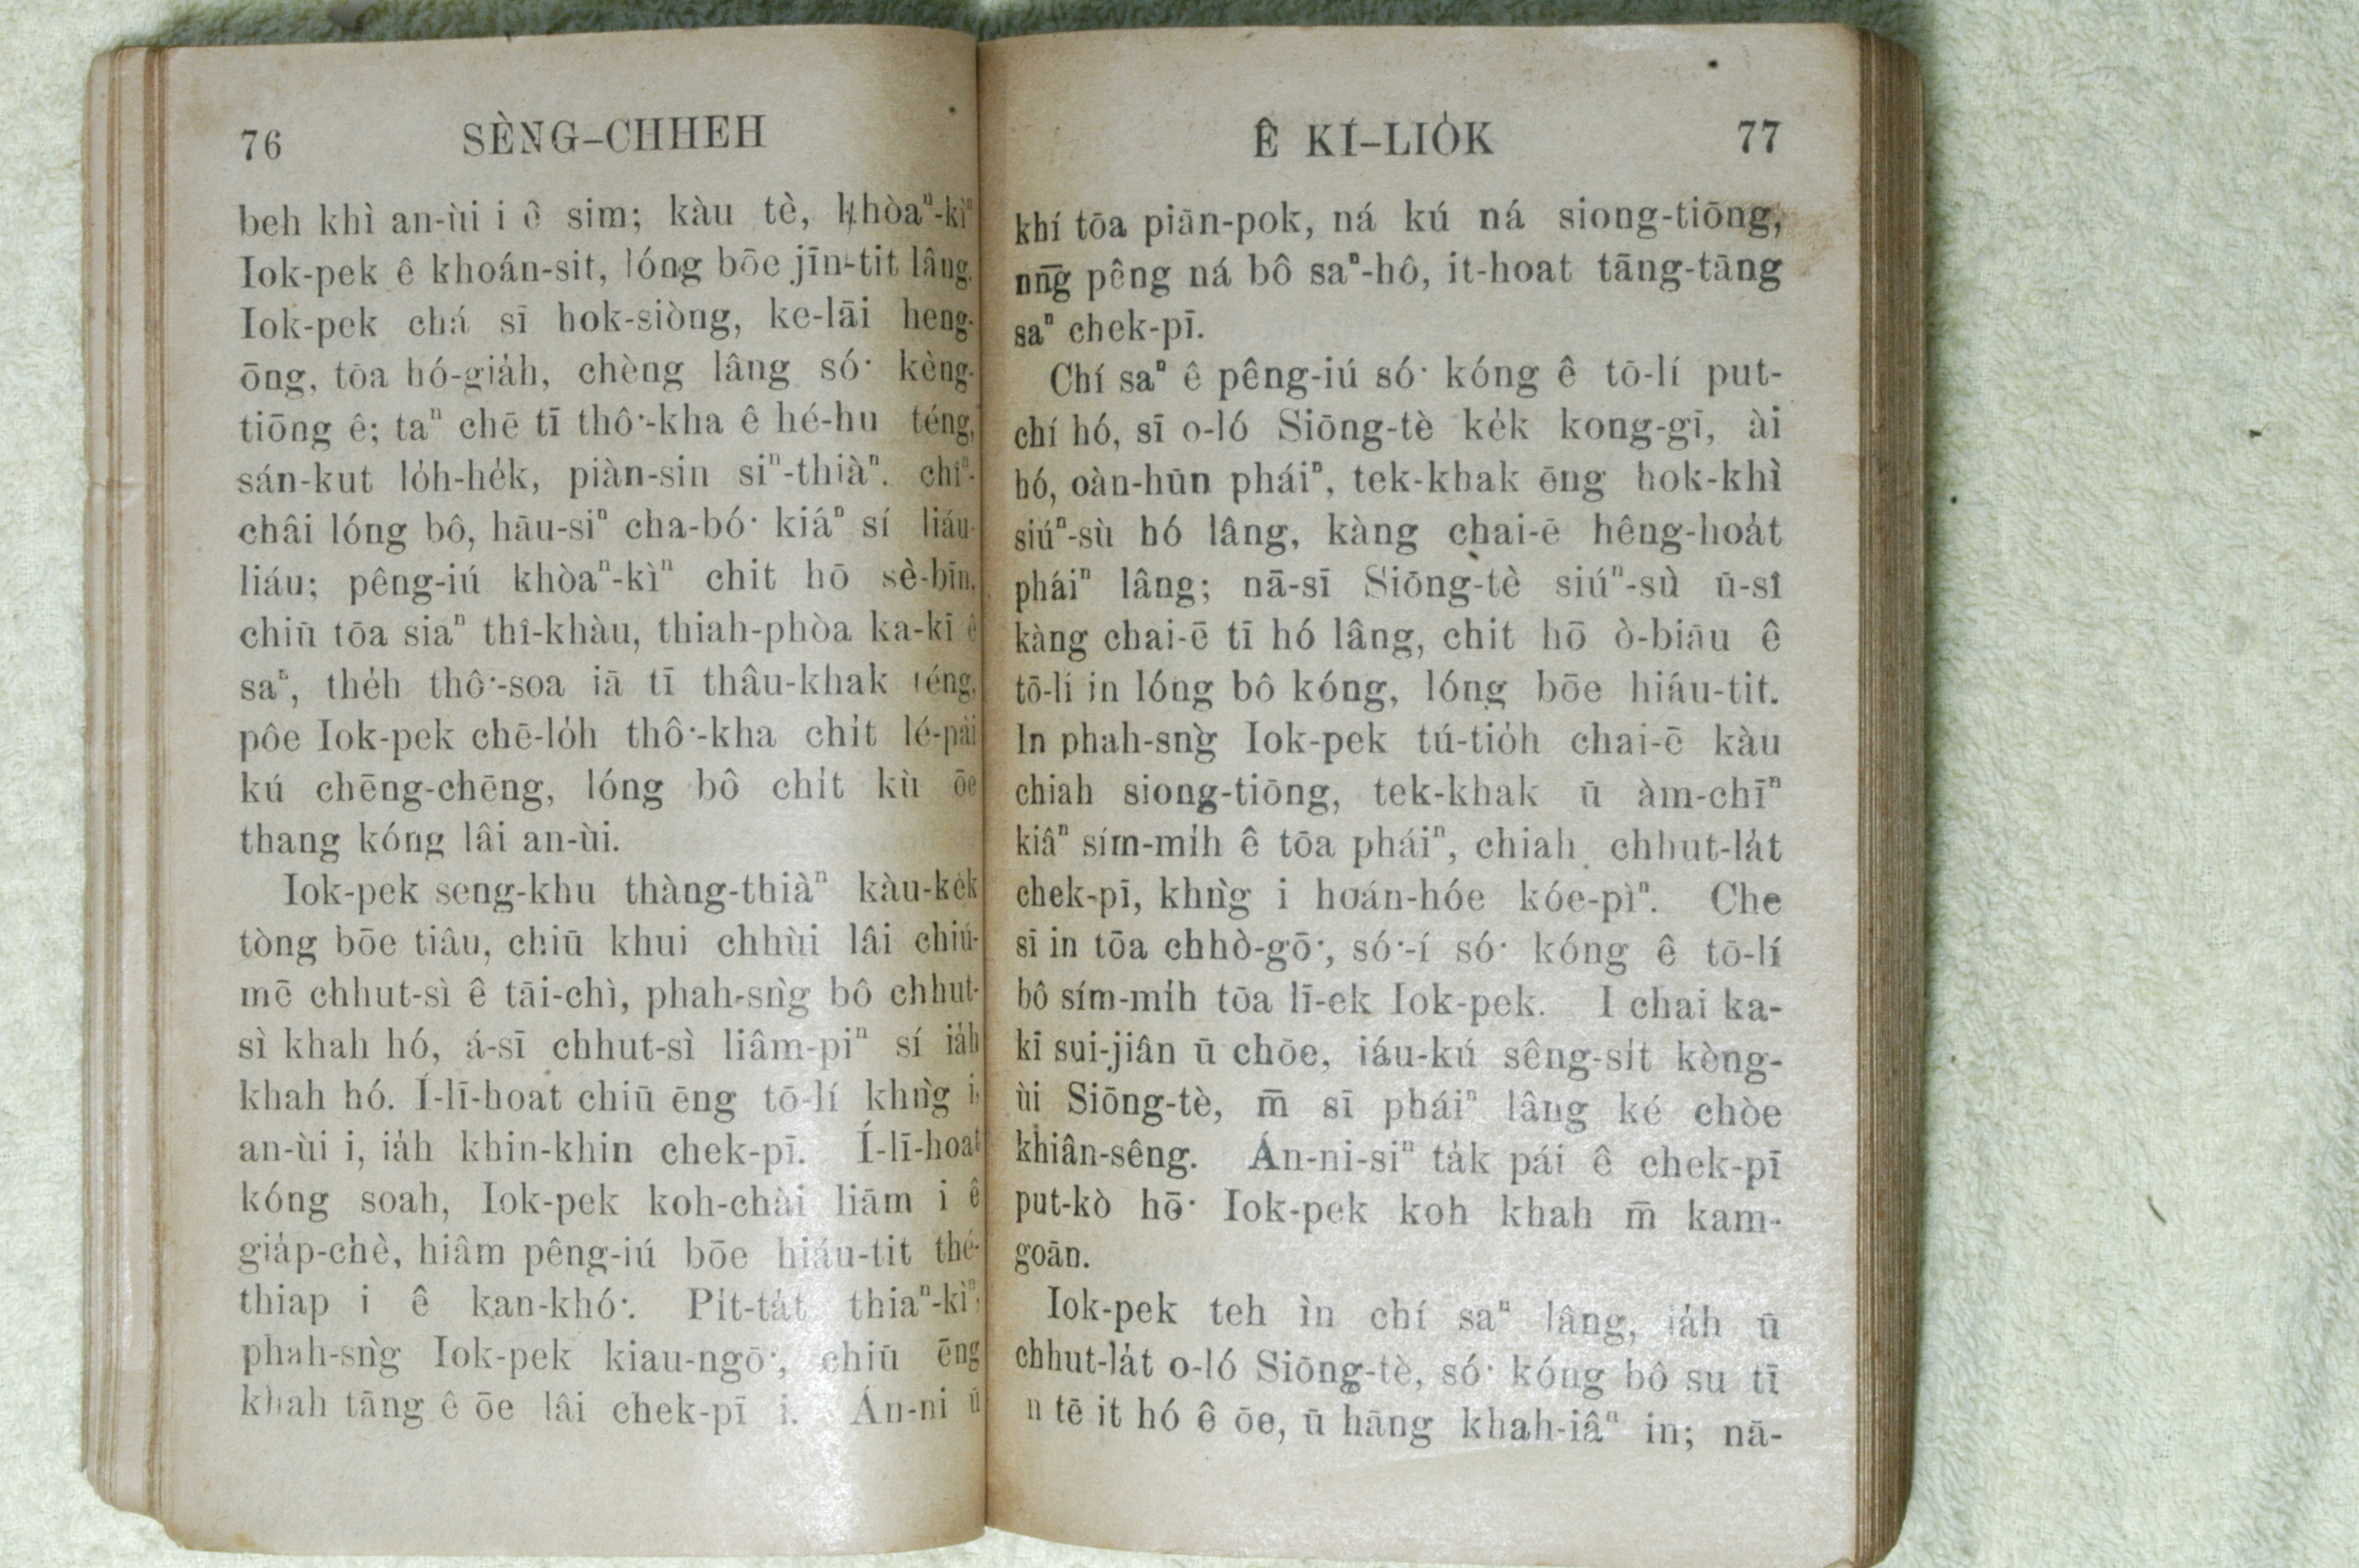 76 SÈNG–CHHEH
beh khì an-ùi i ê sim; kàu tè, khòaⁿ-kìⁿ
Iok-pek ê khoán-sit, lóng bōe jīn-tit lâng.
Iok-pek chá sī hok-siòng, ke-lāi heng-
ōng, tōa hó-gia̍h, chèng lâng só͘ kèng-
tiōng ê; taⁿ chē tī thô͘-kha ê hé-hu téng,
sán-kut lo̍h-he̍k, piàn-sin siⁿ-thiàⁿ. chîⁿ-
châi lóng bô, hāu-siⁿ cha-bó͘ kiáⁿ sí liáu-
liáu; pêng-iú khòaⁿ-kìⁿ chit hō sè-bīn,
chiū tōa siaⁿ thî-khàu, thiah-phòa ka-kī ê
saⁿ, the̍h thô͘-soa iā tī thâu-khak téng,
pôe Iok-pek chē-lo̍h thô͘-kha chi̍t lé-pài
kú chēng-chēng, lóng bô chi̍t kù ōe
thang kóng lâi an-ùi.
Iok-pek seng-khu thàng-thiàⁿ kàu-ke̍k
tòng bōe tiâu, chiū khui chhùi lâi chiú-
mē chhut-sì ê tāi-chì, phah-sǹg bô chhut-
sì khah hó, á-sī chhut-sì liâm-piⁿ sí ia̍h
khah hó. Í-lī-hoat chiū ēng tō-lí khǹg i,
an-ùi i, ia̍h khin-khin chek-pī. Í-lī-hoat
kóng soah, Iok-pek koh-chài liām i ê
gia̍p-chè, hiâm pêng-iú bōe hiáu-tit thé-
thiap i ê kan-khó͘. Pi̍t-ta̍t thiaⁿ-kìⁿ,
phah-sǹg Iok-pek kiau-ngō͘, chiū ēng
khah tāng ê ōe lâi chek-pī i. Án-ni ū
Ê KÍ–LIO̍K 77
khí tōa piān-pok, ná kú ná siong-tiōng,
nn̄g pêng ná bô saⁿ-hô, it-hoat tāng-tāng
saⁿ chek-pī.
Chí saⁿ ê pêng-iú só͘ kóng ê tō-lí put-
chí hó, sī o-ló Siōng-tè ke̍k kong-gī, ài
hó, oàn-hūn pháiⁿ, tek-khak ēng hok-khì
siúⁿ-sù hó lâng, kàng chai-ē hêng-hoa̍t
pháiⁿ lâng; nā-sī Siōng-tè siúⁿ-sù ū-sî
kàng chai-ē tī hó lâng, chit hō ò-biāu ê
tō-lí in lóng bô kóng, lóng bōe hiáu-tit.
In phah-sǹg Iok-pek tú-tio̍h chai-ē kàu
chiah siong-tiōng, tek-khak ū àm-chīⁿ
kiâⁿ sím-mi̍h ê tōa pháiⁿ, chiah chhut-la̍t
chek-pī, khǹg i hoán-hóe kóe-pìⁿ. Che
sī in tōa chhò-gō͘, só͘-í só͘ kóng ê tō-lí
bô sím-mi̍h tōa lī-ek Iok-pek. I chai ka-
kī sui-jiân ū chōe, iáu-kú sêng-si̍t kèng-
ùi Siōng-tè, m̄ sī pháiⁿ lâng ké chòe
khiân-sêng. Án-ni-siⁿ ta̍k pái ê chek-pī
put-kò hō͘ Iok-pek koh khah m̄ kam-
goān.
Iok-pek teh ìn chí saⁿ lâng, ia̍h ū
chhut-la̍t o-ló Siōng-tè, só͘ kóng bô su tī
tē it hó ê ōe, ū hāng khah-iâⁿ in; nā-